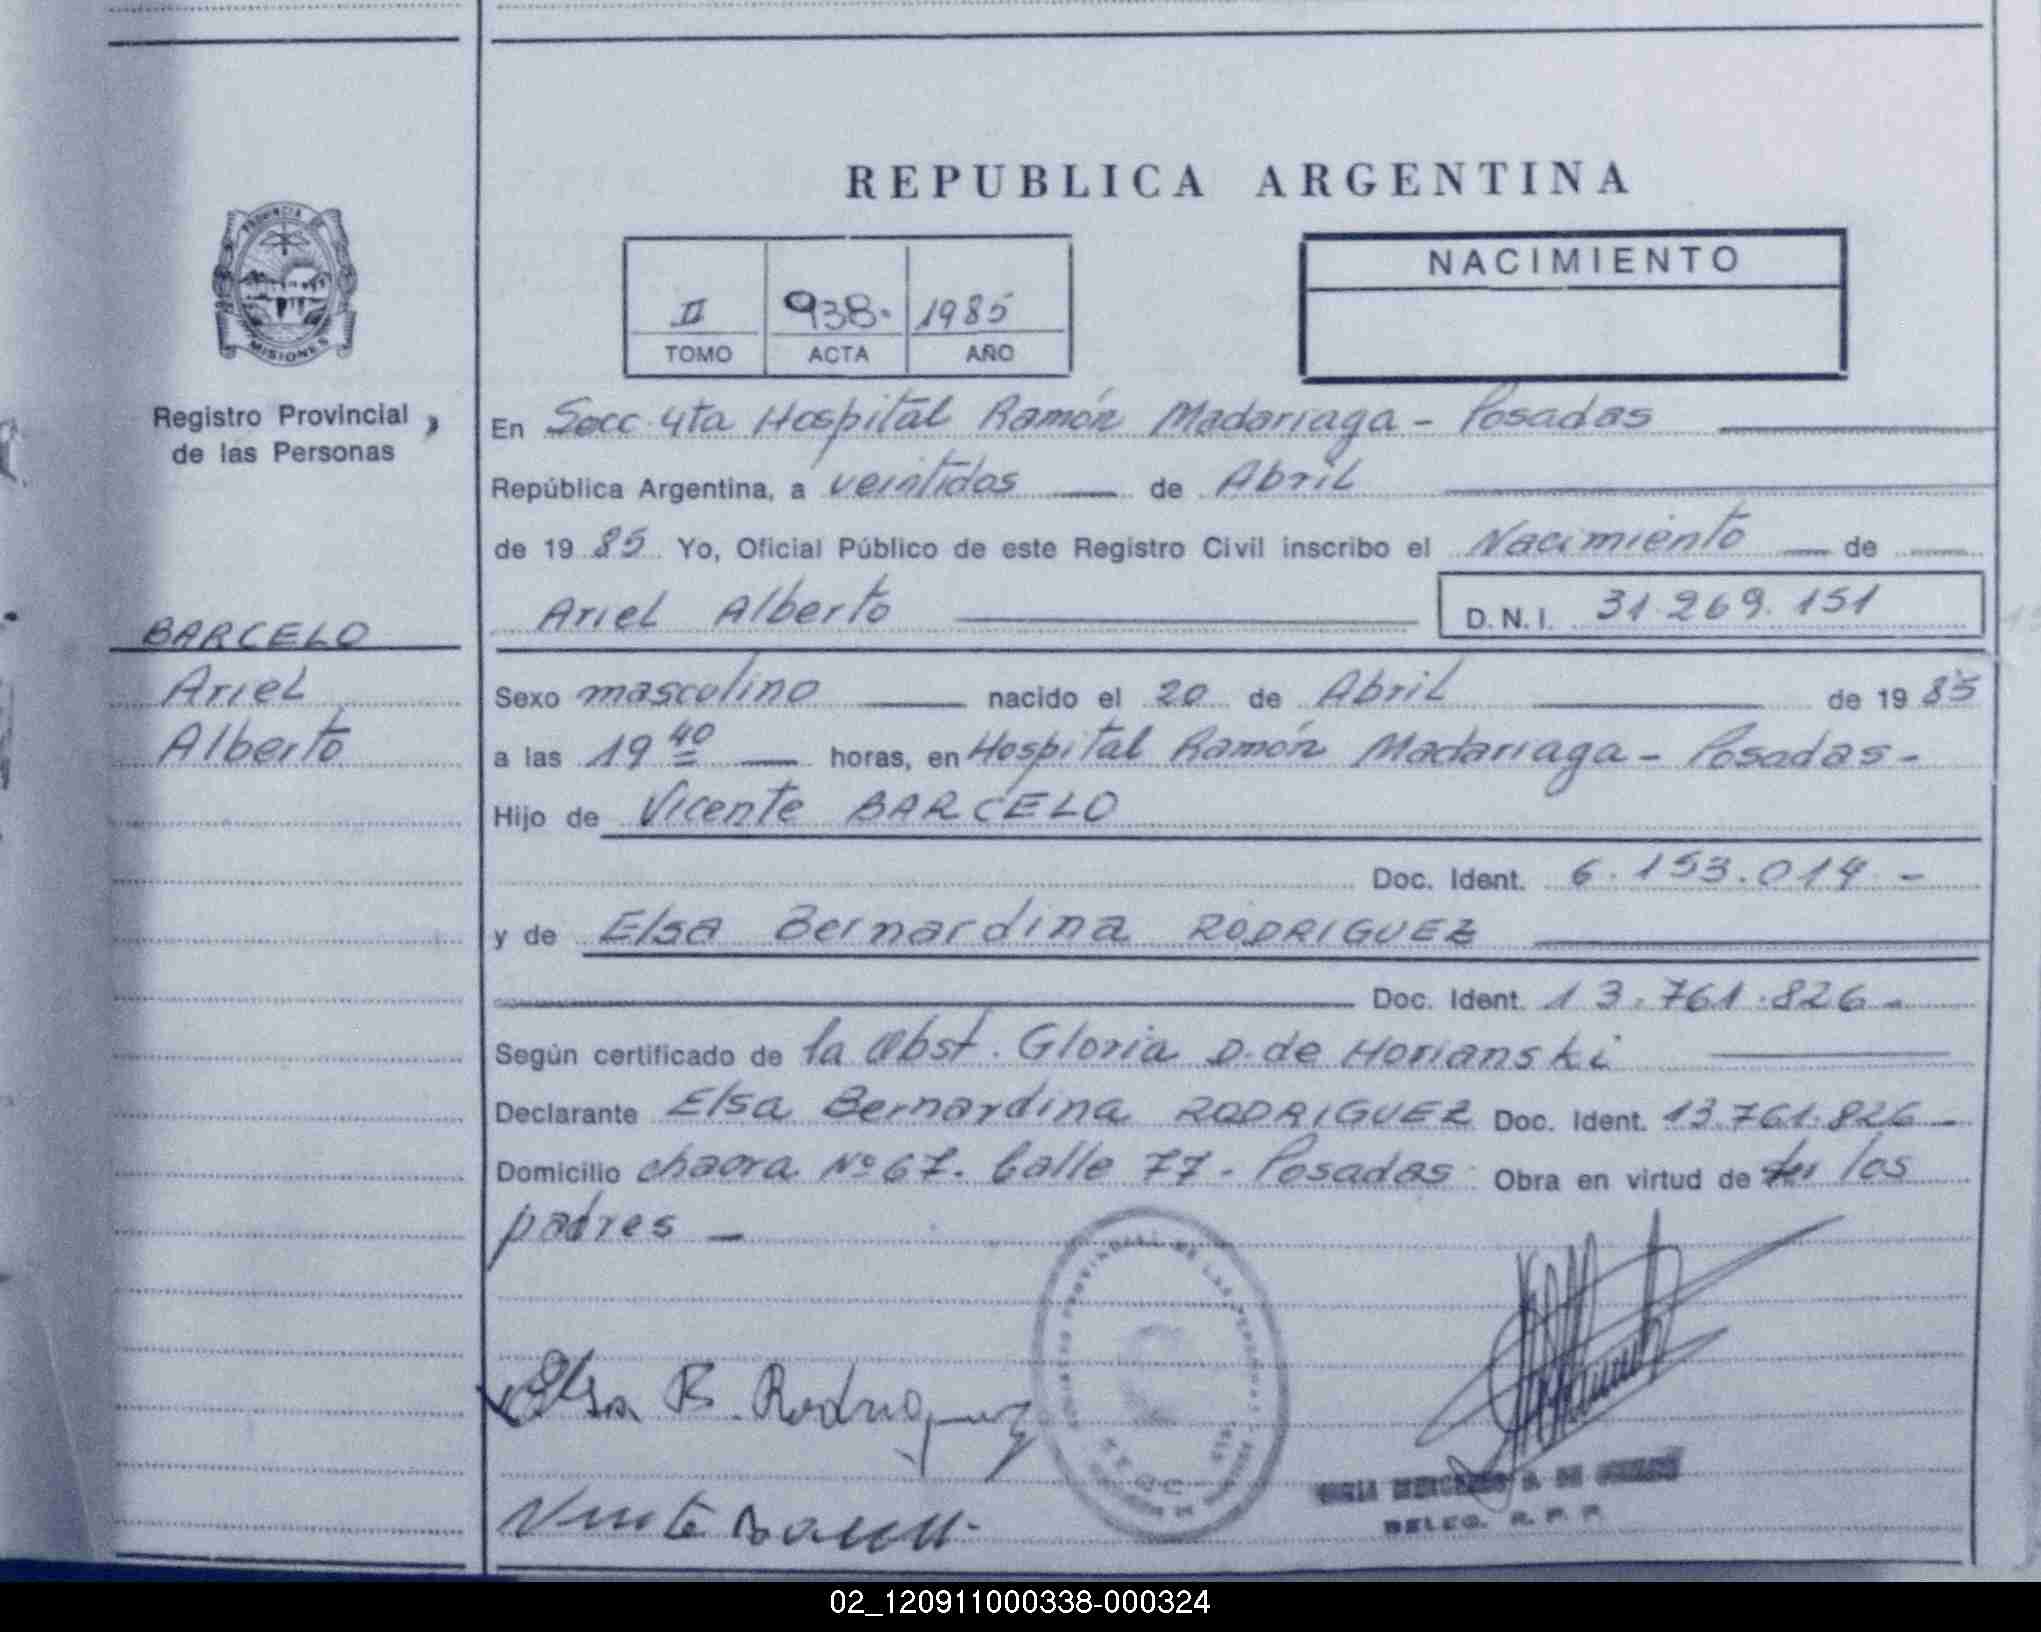 REPUBLICA ARGENTINA
NACIMIENTO
II 938. 1985
TOMO ACTA AÑO
PROVINCIA DE
MISIONES
Registro Provincial
de las Personas
BARCELO
Ariel
Alberto
En Secc. 4ta Hospital Ramón Madariaga - Posadas
República Argentina, a veintidos de Abril
de 19 85 Yo, Oficial Público de este Registro Civil inscribo el Nacimiento de
Ariel Alberto D.N.I. 31.269.151
Sexo masculino nacido el 20 de Abril de 19 85
a las 19 40 horas, en Hospital Ramón Madariaga - Posadas -
Hijo de Vicente BARCELO
Doc. Ident. 6.153.014 -
y de Elsa Bernardina RODRIGUEZ
Doc. Ident. 13.761.826 -
Según certificado de la Obst. Gloria D. de Horianski
Declarante Elsa Bernardina RODRIGUEZ Doc. Ident. 13.761.826 -
Domicilio chacra Nº 67. Calle 77 - Posadas Obra en virtud de los
padres -
Elsa B. Rodriguez
Vicente Barcelo
PROVINCIAL DE LAS PERSONAS
DELEG. R. P. P.
02_120911000338-000324